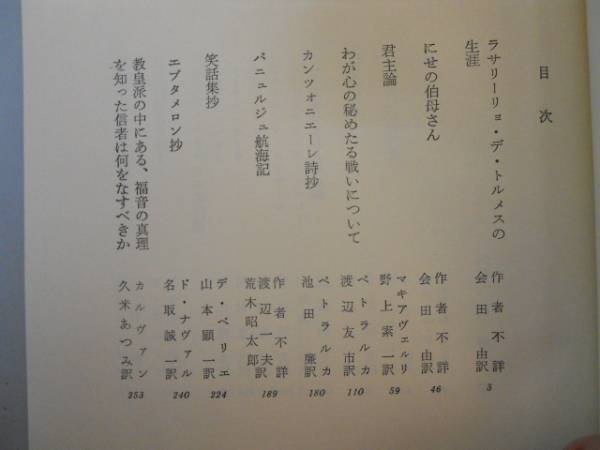 目次
ラサリーリョ・デ・トルメスの
生涯
作者不詳
会田由訳
3
にせの伯母さん
作者不詳
会田由訳
46
君主論
マキアヴェルリ
野上素一訳
59
わが心の秘めたる戦いについて
ペトラルカ
渡辺友市訳
110
カンツォニエーレ詩抄
ペトラルカ
池田廉訳
180
パニュルジュ航海記
作者不詳
渡辺一夫
荒木昭太郎訳
189
笑話集抄
デ・ペリエ
山本顕一訳
224
エプタメロン抄
ド・ナヴァル
名取誠一訳
240
教皇派の中にある、福音の真理
を知った信者は何をなすべきか
カルヴァン
久米あつみ訳
253